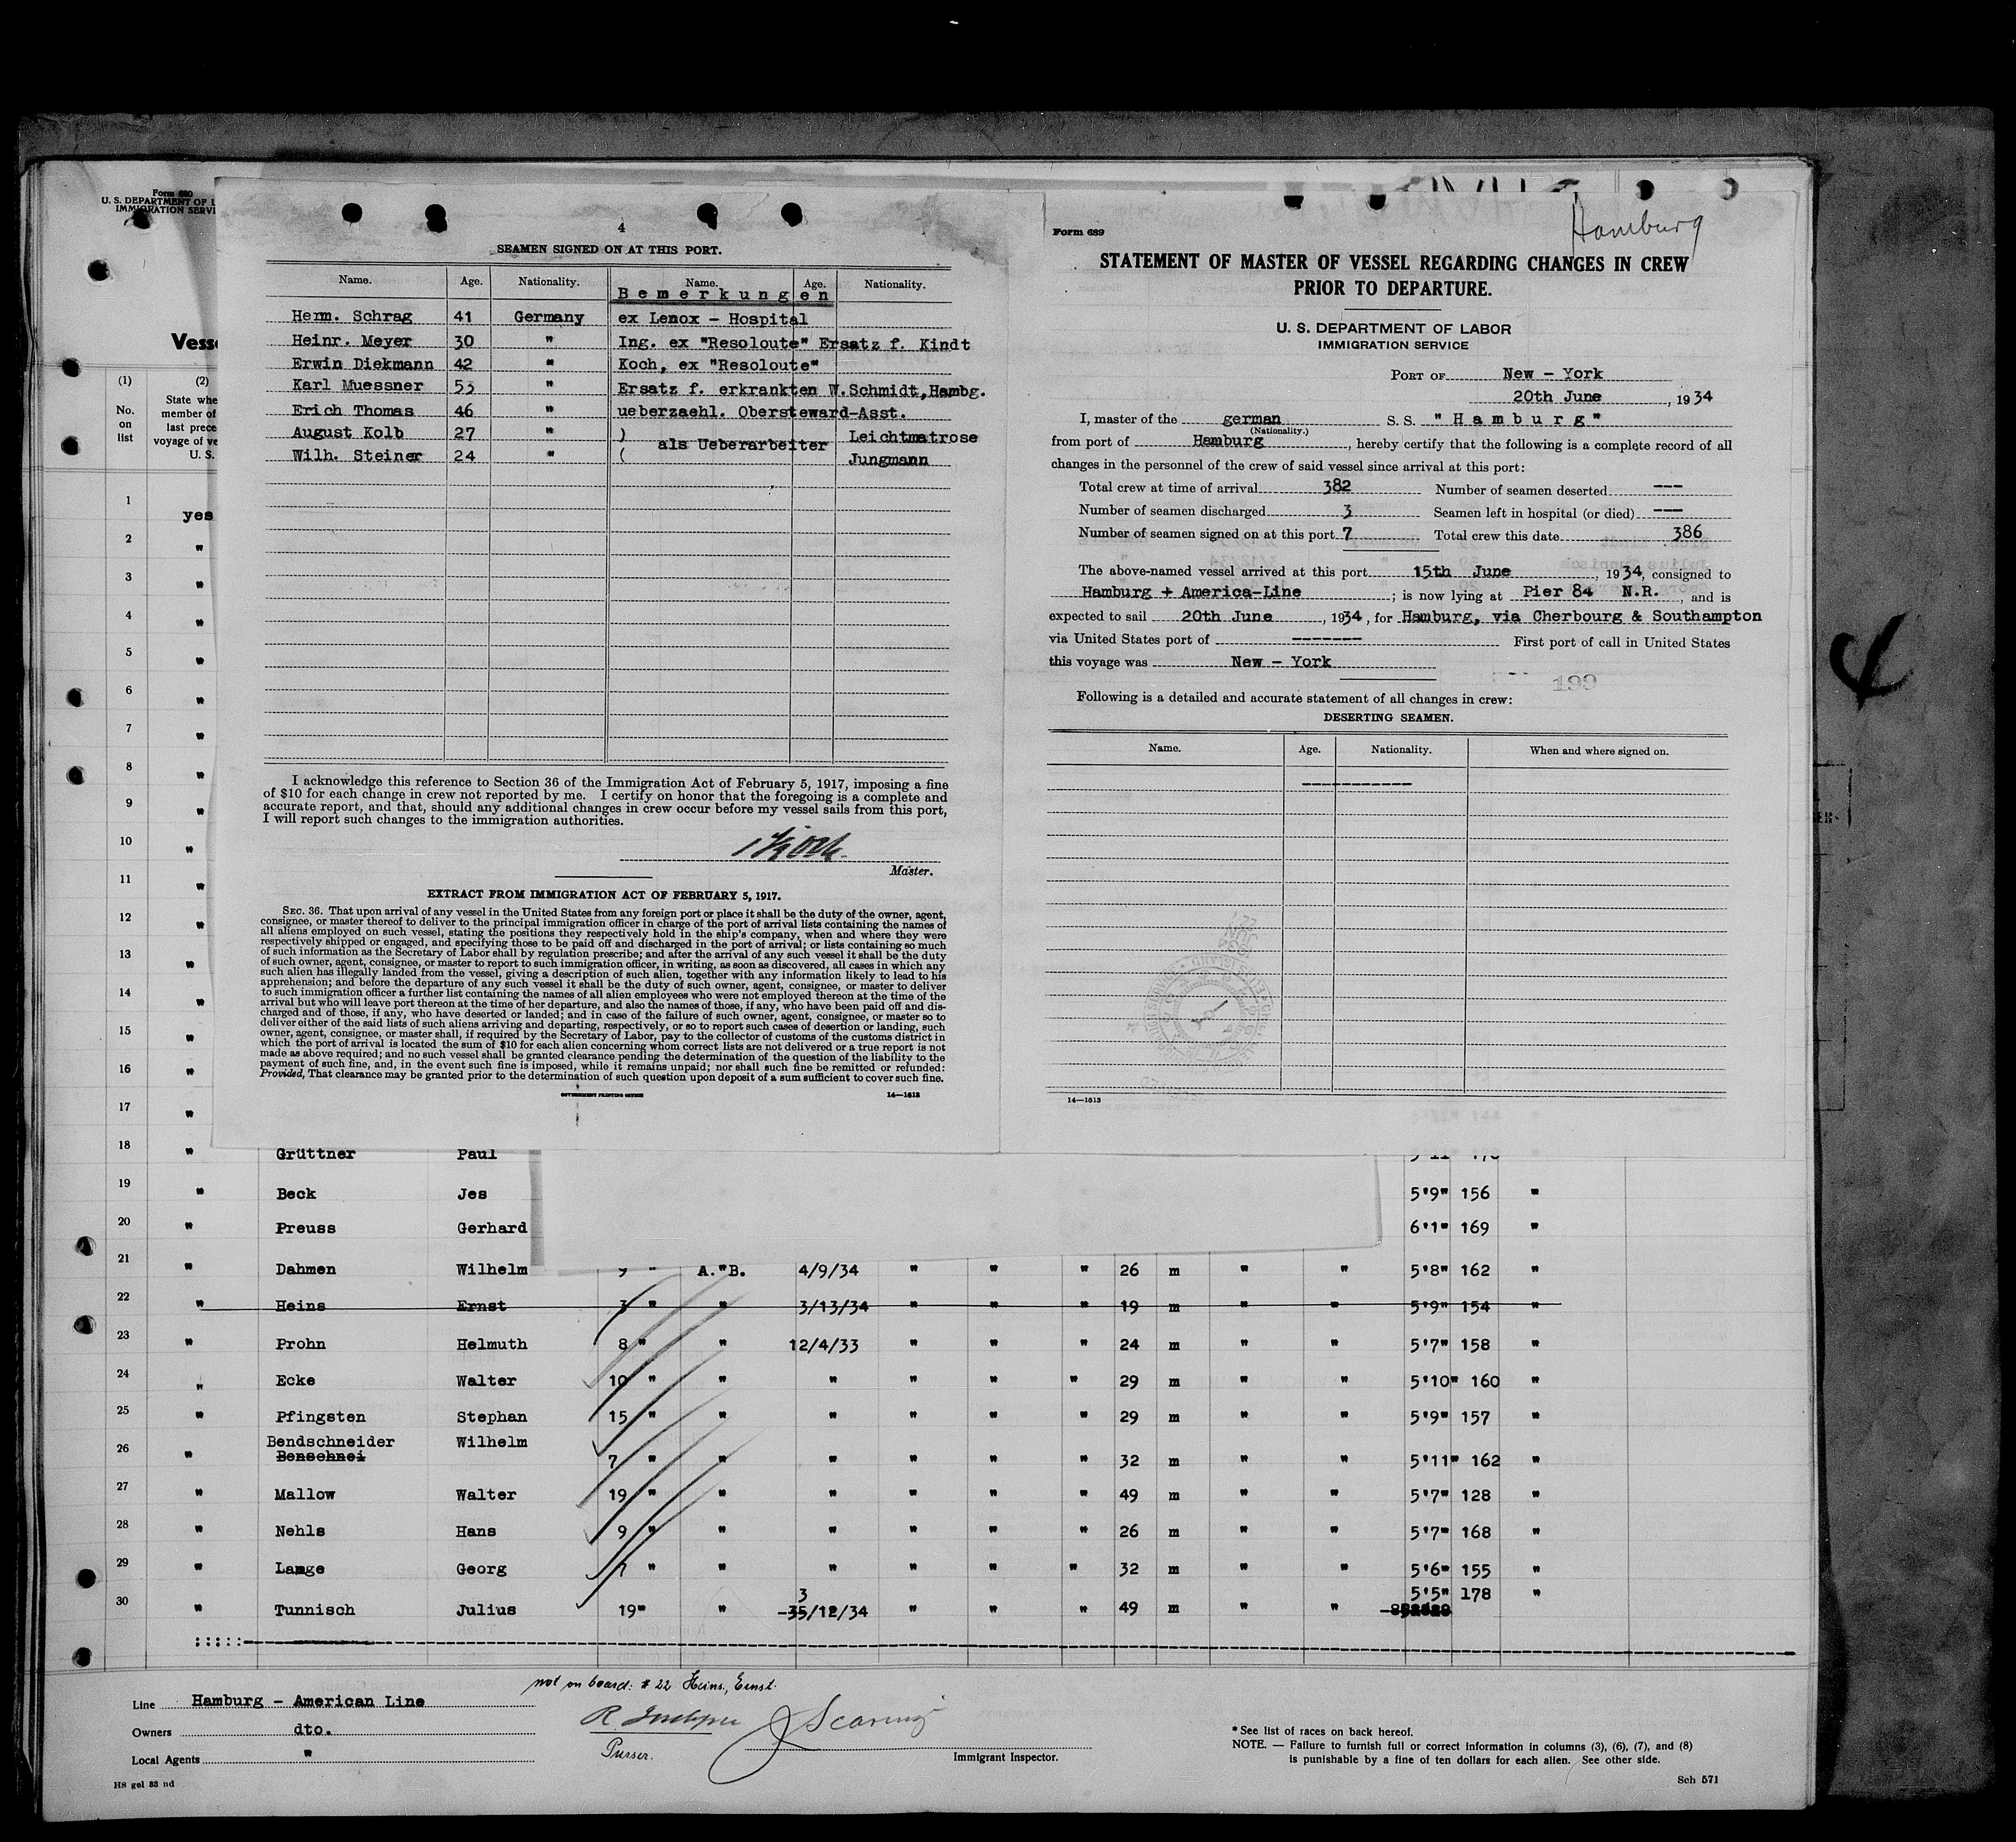 Form 680
U. S. DEPARTMENT OF L
IMMIGRATION SERVI
Vess
(1) (2)
No. on list
State whe
member of
last prece
voyage of ve
U. S.
4
SEAMEN SIGNED ON AT THIS PORT.
Name. Age. Nationality. Name. Age. Nationality.
Bemerkungen
Herm. Schrag 41 Germany ex Lenox - Hospital
Heinr. Meyer 30 " Ing. ex "Resoloute" Ersatz f. Kindt
Erwin Diekmann 42 " Koch, ex "Resoloute"
Karl Muessner 53 " Ersatz f. erkrankten W.Schmidt,Hambg.
Erich Thomas 46 " ueberzaehl. Obersteward-Asst.
August Kolb 27 " ) als Ueberarbeiter Leichtmatrose
Wilh. Steiner 24 " ( Jungmann
I acknowledge this reference to Section 36 of the Immigration Act of February 5, 1917, imposing a fine
of $10 for each change in crew not reported by me. I certify on honor that the foregoing is a complete and
accurate report, and that, should any additional changes in crew occur before my vessel sails from this port,
I will report such changes to the immigration authorities.
Master.
EXTRACT FROM IMMIGRATION ACT OF FEBRUARY 5, 1917.
SEC. 36. That upon arrival of any vessel in the United States from any foreign port or place it shall be the duty of the owner, agent,
consignee, or master thereof to deliver to the principal immigration officer in charge of the port of arrival lists containing the names of
all aliens employed on such vessel, stating the positions they respectively hold in the ship's company, when and where they were
respectively shipped or engaged, and specifying those to be paid off and discharged in the port of arrival; or lists containing so much
of such information as the Secretary of Labor shall by regulation prescribe; and after the arrival of any such vessel it shall be the duty
of such owner, agent, consignee, or master to report to such immigration officer, in writing, as soon as discovered, all cases in which any
such alien has illegally landed from the vessel, giving a description of such alien, together with any information likely to lead to his
apprehension; and before the departure of any such vessel it shall be the duty of such owner, agent, consignee, or master to deliver
to such immigration officer a further list containing the names of all alien employees who were not employed thereon at the time of the
arrival but who will leave port thereon at the time of her departure, and also the names of those, if any, who have been paid off and dis-
charged and of those, if any, who have deserted or landed; and in case of the failure of such owner, agent, consignee, or master so to
deliver either of the said lists of such aliens arriving and departing, respectively, or so to report such cases of desertion or landing, such
owner, agent, consignee, or master shall, if required by the Secretary of Labor, pay to the collector of customs of the customs district in
which the port of arrival is located the sum of $10 for each alien concerning whom correct lists are not delivered or a true report is not
made as above required; and no such vessel shall be granted clearance pending the determination of the question of the liability to the
payment of such fine, and, in the event such fine is imposed, while it remains unpaid; nor shall such fine be remitted or refunded:
Provided, That clearance may be granted prior to the determination of such question upon deposit of a sum sufficient to cover such fine.
GOVERNMENT PRINTING OFFICE 14—1613
Hamburg
Form 689
STATEMENT OF MASTER OF VESSEL REGARDING CHANGES IN CREW
PRIOR TO DEPARTURE.
U. S. DEPARTMENT OF LABOR
IMMIGRATION SERVICE
PORT OF New - York
20th June, 1934
I, master of the german S. S. "Hamburg"
(Nationality.)
from port of Hamburg, hereby certify that the following is a complete record of all
changes in the personnel of the crew of said vessel since arrival at this port:
Total crew at time of arrival 382 Number of seamen deserted ---
Number of seamen discharged 3 Seamen left in hospital (or died) ---
Number of seamen signed on at this port 7 Total crew this date 386
The above-named vessel arrived at this port 15th June, 1934, consigned to
Hamburg + America-Line; is now lying at Pier 84 N.R., and is
expected to sail 20th June, 1934, for Hamburg, via Cherbourg & Southampton
via United States port of ------- First port of call in United States
this voyage was New - York
199
Following is a detailed and accurate statement of all changes in crew:
DESERTING SEAMEN.
Name. Age. Nationality. When and where signed on.
-----------
14—1613
1 yes
2 "
3 "
4 "
5 "
6 "
7 "
8 "
9 "
10 "
11 "
12 "
13 "
14 "
15 "
16 "
17 "
18 " Grüttner Paul
19 " Beck Jes 5'9" 156 "
20 " Preuss Gerhard 6'1" 169 "
21 " Dahmen Wilhelm 9 " A."B. 4/9/34 " " " 26 m " " 5'8" 162 "
22 " Heins Ernst 3 " " 3/13/34 " " " 19 m " " 5'9" 154 "
23 " Prohn Helmuth 8 " " 12/4/33 " " " 24 m " " 5'7" 158 "
24 " Ecke Walter 10 " " " " " " 29 m " " 5'10" 160 "
25 " Pfingsten Stephan 15 " " " " " " 29 m " " 5'9" 157 "
26 " Bendschneider Wilhelm
Benschnei 7 " " " " " " 32 m " " 5'11" 162 "
27 " Mallow Walter 19 " " " " " " 49 m " " 5'7" 128 "
28 " Nehls Hans 9 " " " " " " 26 m " " 5'7" 168 "
29 " Lange Georg 7 " " " " " " 32 m " " 5'6" 155 "
3 5'5" 178 "
30 " Tunnisch Julius 19" " -35/12/34 " " " 49 m " "
not on board: # 22 Heins, Ernst.
Line Hamburg - American Line
Owners dto.
Local Agents "
Purser.
Immigrant Inspector.
* See list of races on back hereof.
NOTE. — Failure to furnish full or correct information in columns (3), (6), (7), and (8)
is punishable by a fine of ten dollars for each alien. See other side.
HS gel 33 nd
Sch 571